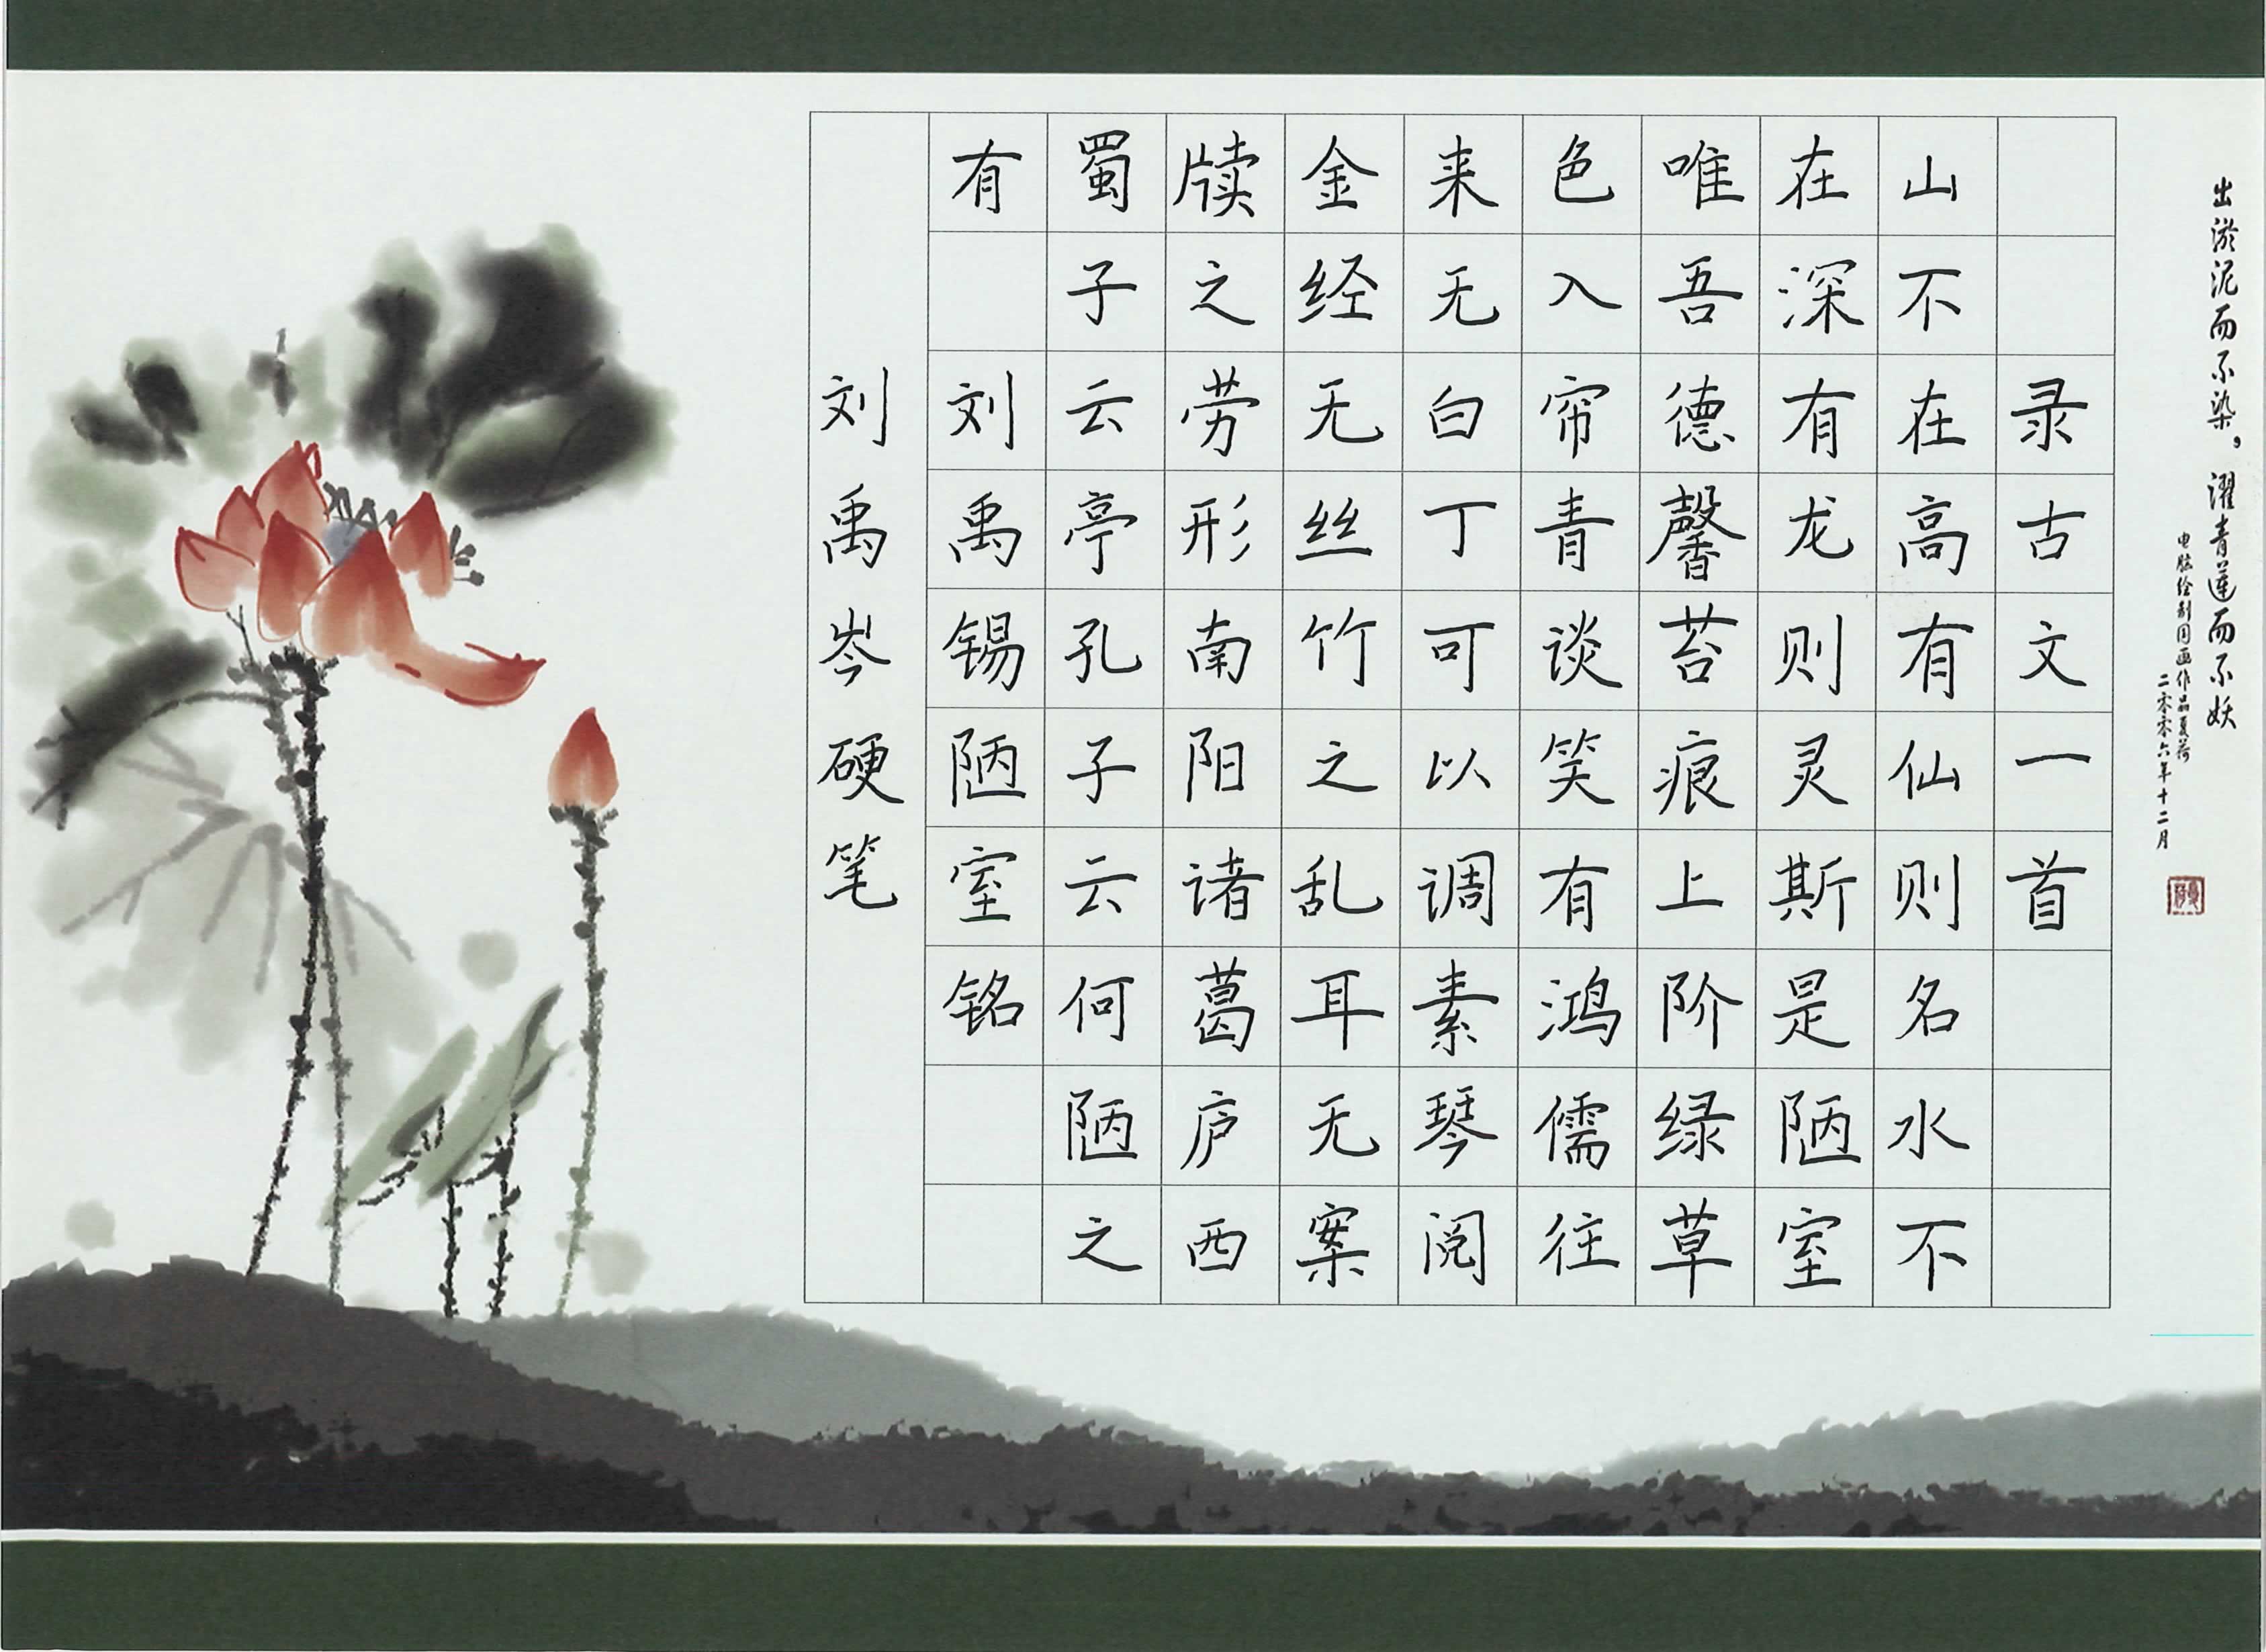 出淤泥而不染，濯青莲而不妖
电脑绘制国画作品夏荷
二零零六年十二月
录古文一首
山不在高有仙则名水不
在深有龙则灵斯是陋室
唯吾德馨苔痕上阶绿草
色入帘青谈笑有鸿儒往
来无白丁可以调素琴阅
金经无丝竹之乱耳无案
牍之劳形南阳诸葛庐西
蜀子云亭孔子云何陋之
有 刘禹锡陋室铭
刘禹岑硬笔